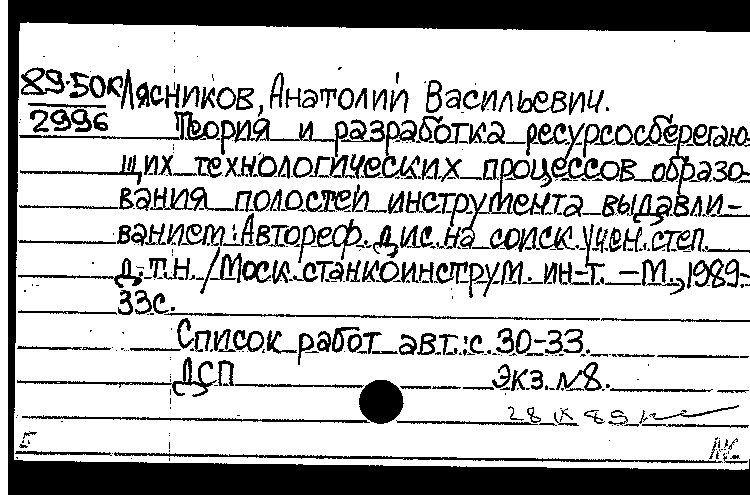 89-50к Лясников, Анатолий Васильевич.
2996
Теория и разработка ресурсосберегаю-
щих технологических процессов образо-
вания полостей инструмента выдавли-
ванием: Автореф. дис. на соиск. учен. степ.
д.т.н. / Моск. станкоинструм. ин-т. – М., 1989-
33с.
Список работ авт.: с. 30-33.
ДСП Экз. №8.
28 IX 89